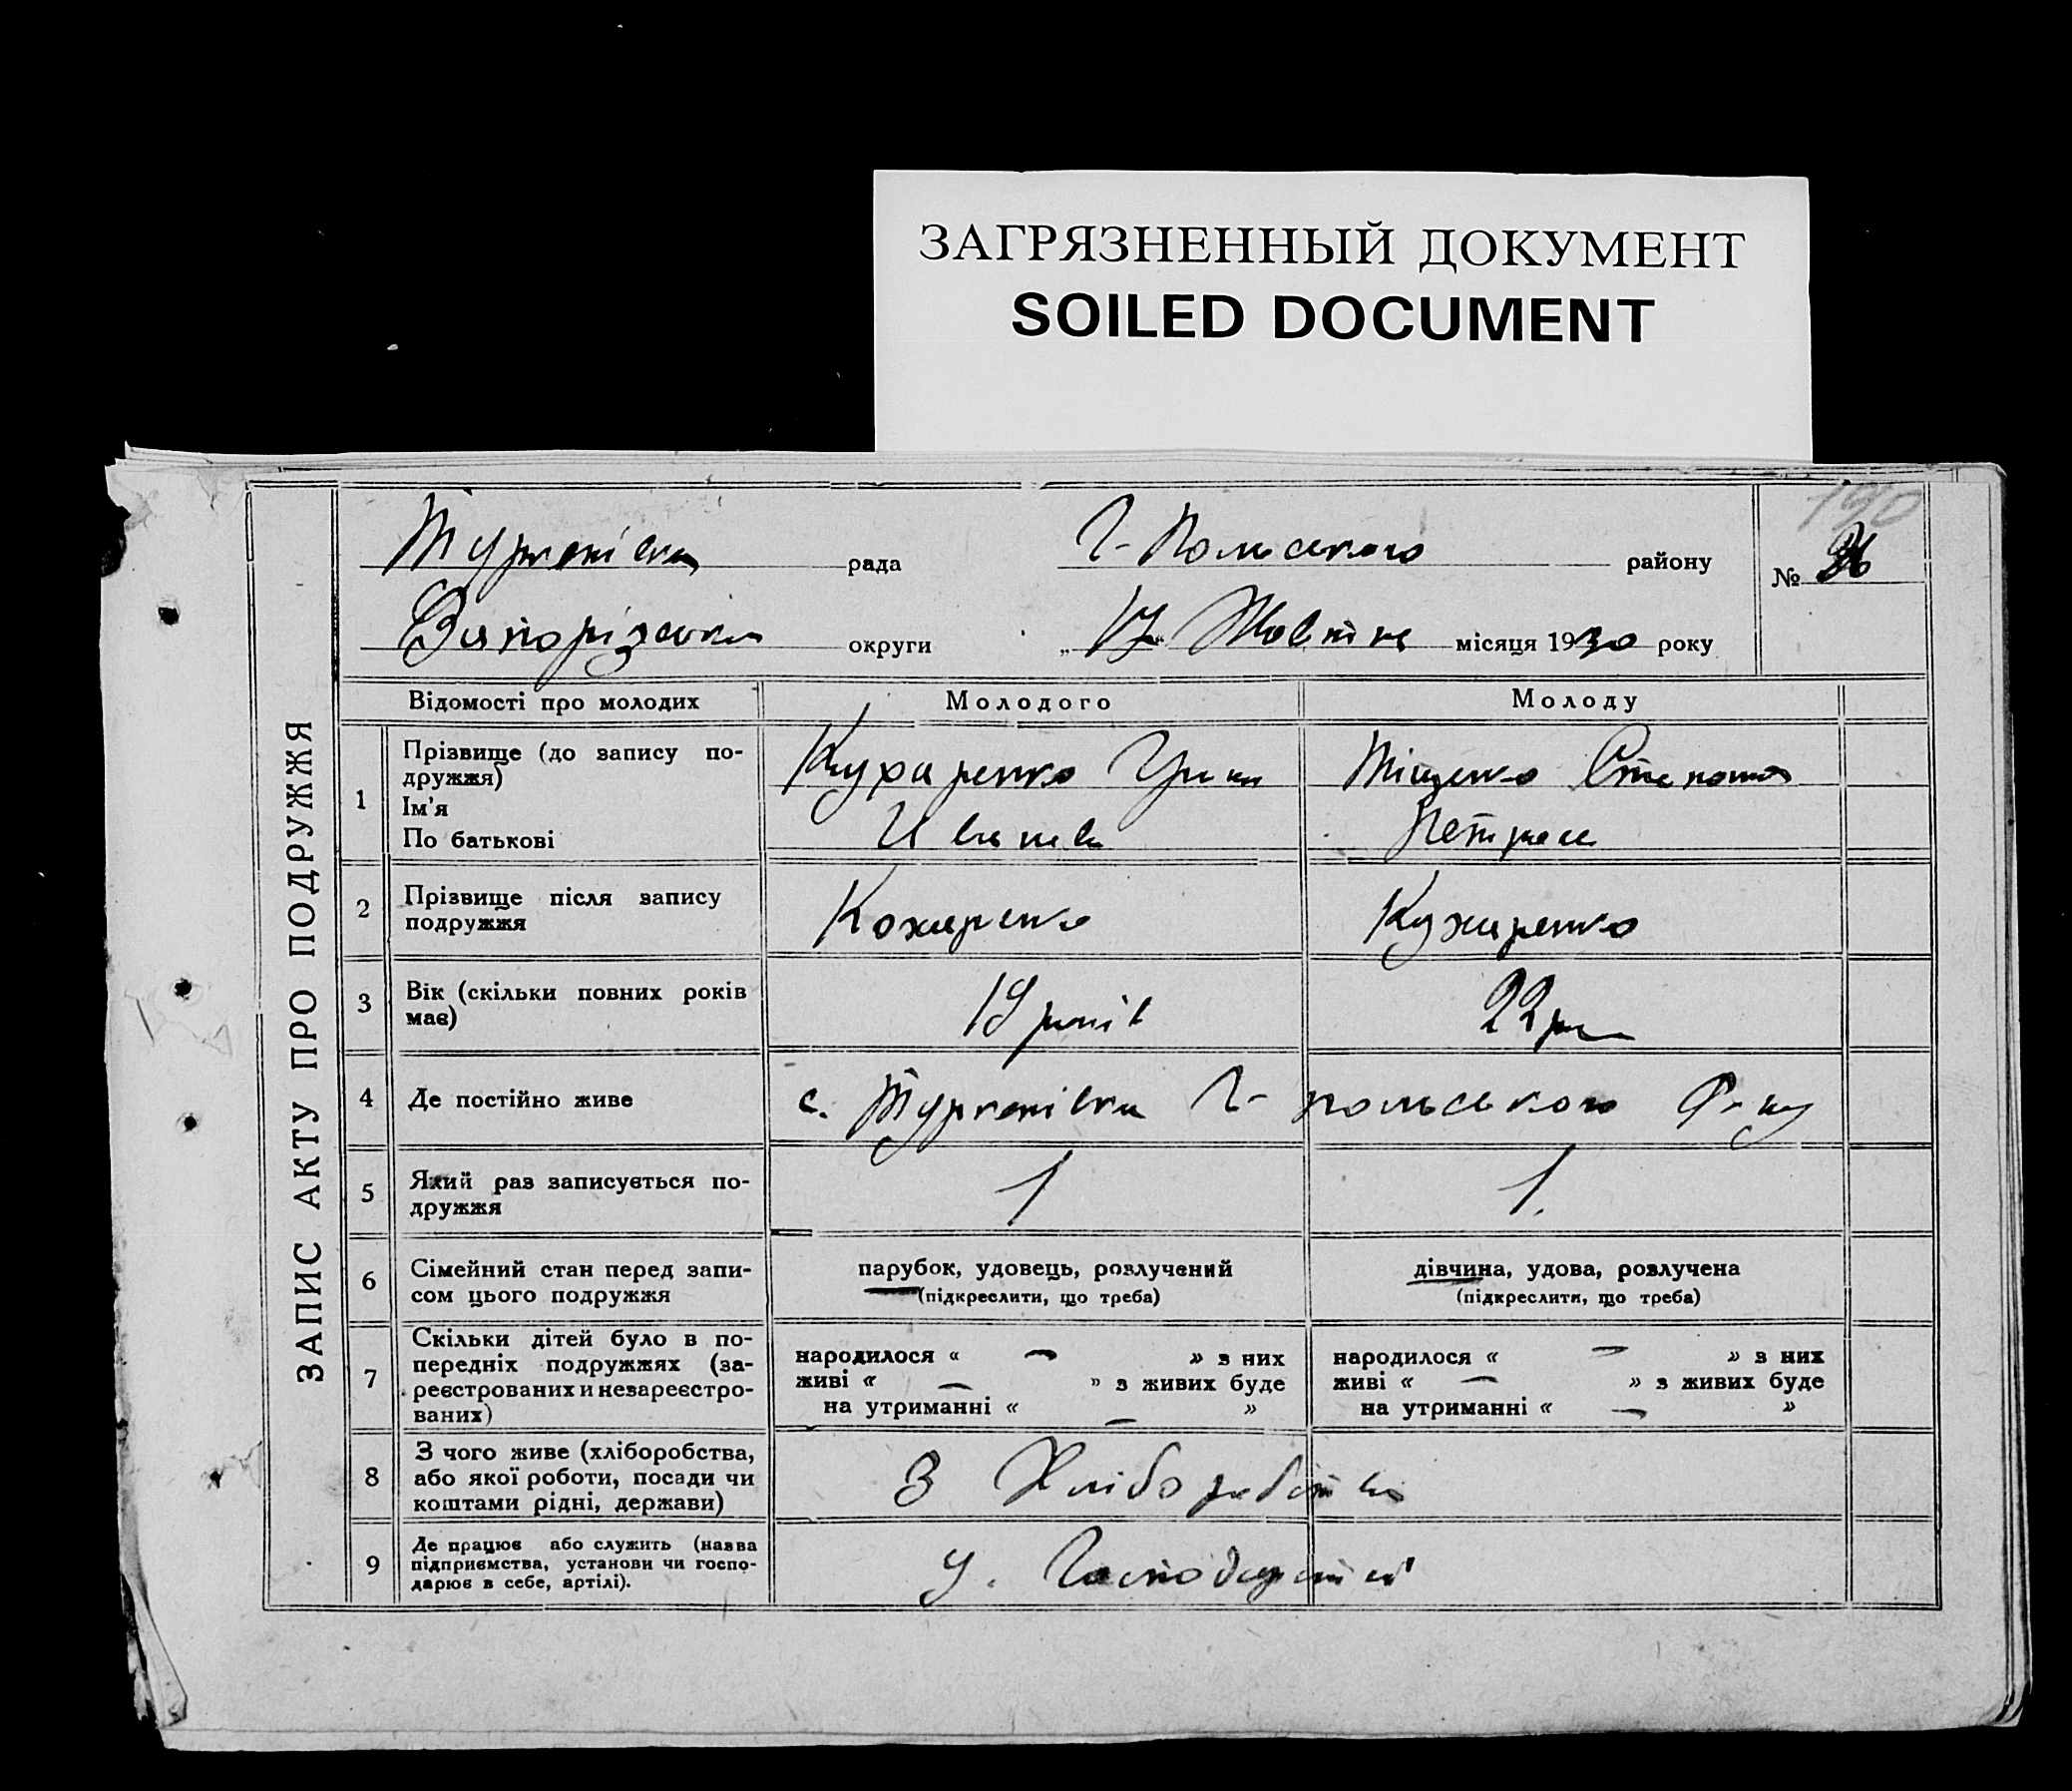 ЗАГРЯЗНЕННЫЙ ДОКУМЕНТ
SOILED DOCUMENT
190
ЗАПИС АКТУ ПРО ПОДРУЖЖЯ
рада Г-Польського району
№ 26
Запорізської округи „17“ Жовтня місяця 1930 року
Відомості про молодих Молодого Молоду
1 Прізвище (до запису по-
дружжя)
Ім'я
По батькові
Кухаренко
Тищенко Степанида
2 Прізвище після запису
подружжя
Кохаренко Кухаренко
3 Вік (скільки повних років
має)
19 років 22 р
4 Де постійно живе с. Г-польського Р-ну
5 Який раз записується по-
дружжя
1 1.
6 Сімейний стан перед запи-
сом цього подружжя
парубок, удовець, розлучений
(підкреслити, що треба)
дівчина, удова, розлучена
(підкреслити, що треба)
7 Скільки дітей було в по-
передніх подружжях (за-
реєстрованих и незареєстро-
ваних)
народилося « — » з них
живі « — » з живих буде
на утриманні « — »
народилося « — » з них
живі « — » з живих буде
на утриманні « — »
8 З чого живе (хліборобства,
або якої роботи, посади чи
коштами рідні, держави)
З Хліборобства
9 Де працює або служить (назва
підприємства, установи чи госпо-
дарює в себе, артілі).
У.